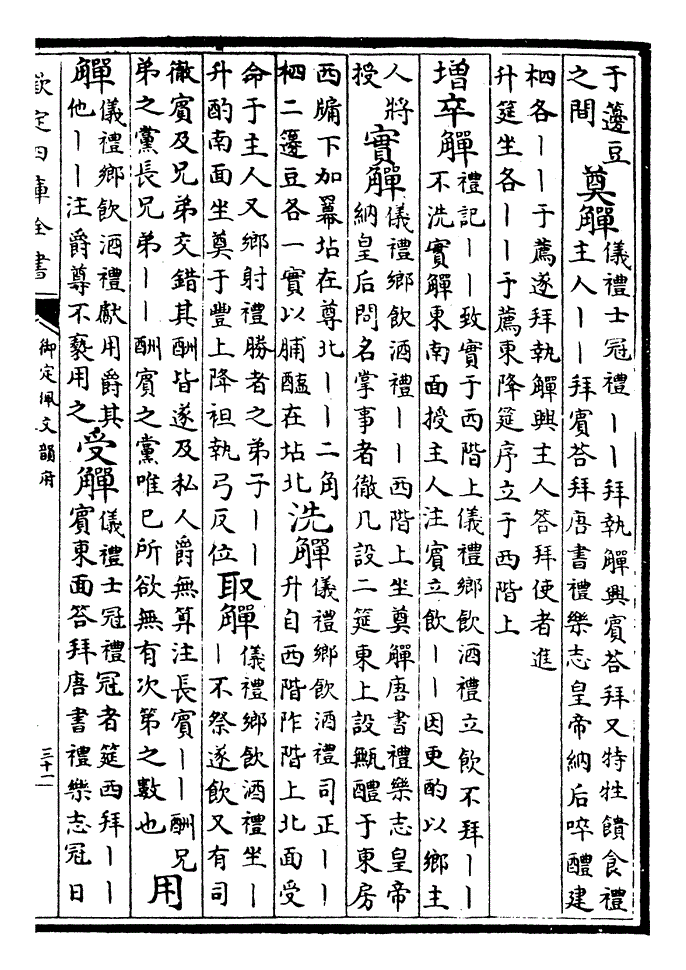 于籩豆
之間
奠觶
儀禮士冠禮丨丨拜執觶興賓荅拜又特牲饋食禮
主人丨丨拜賓荅拜唐書禮樂志皇帝納后啐醴建
柶各丨丨于薦遂拜執觶興主人答拜使者進
升筵坐各丨丨于薦東降筵序立于西階上
增卒觶
禮記丨丨致實于西階上儀禮鄉飲酒禮立飲不拜丨丨
不洗實觶東南面授主人注賓立飲丨丨因更酌以鄉主
人將
授
實觶
儀禮鄉飲酒禮丨丨西階上坐奠觶唐書禮樂志皇帝
納皇后問名掌事者徹几設二筵東上設甒醴于東房
西牖下加羃坫在尊北丨丨二角
柶二籩豆各一實以脯醢在坫北
洗觶
儀禮鄉飲酒禮司正丨丨
升自西階阼階上北面受
命于主人又鄉射禮勝者之弟子丨丨
升酌南面坐奠于豐上降袒執弓反位
取觶
儀禮鄉飲酒禮坐丨
丨不祭遂飲又有司
徹賓及兄弟交錯其酬皆遂及私人爵無算注長賓丨丨酬兄
弟之黨長兄弟丨丨酬賓之黨唯已所欲無有次第之數也
用
觶
儀禮鄉飲酒禮獻用爵其
他丨丨注爵尊不褻用之
受觶
儀禮士冠禮冠者筵西拜丨丨
賓東面答拜唐書禮樂志冠日
欽定四庫全書
御定佩文韻府
三十一